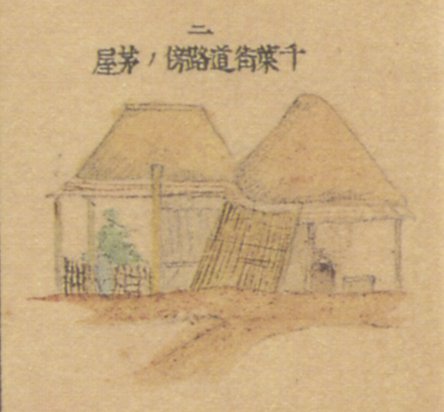 二
千葉街道路傍ノ茅屋